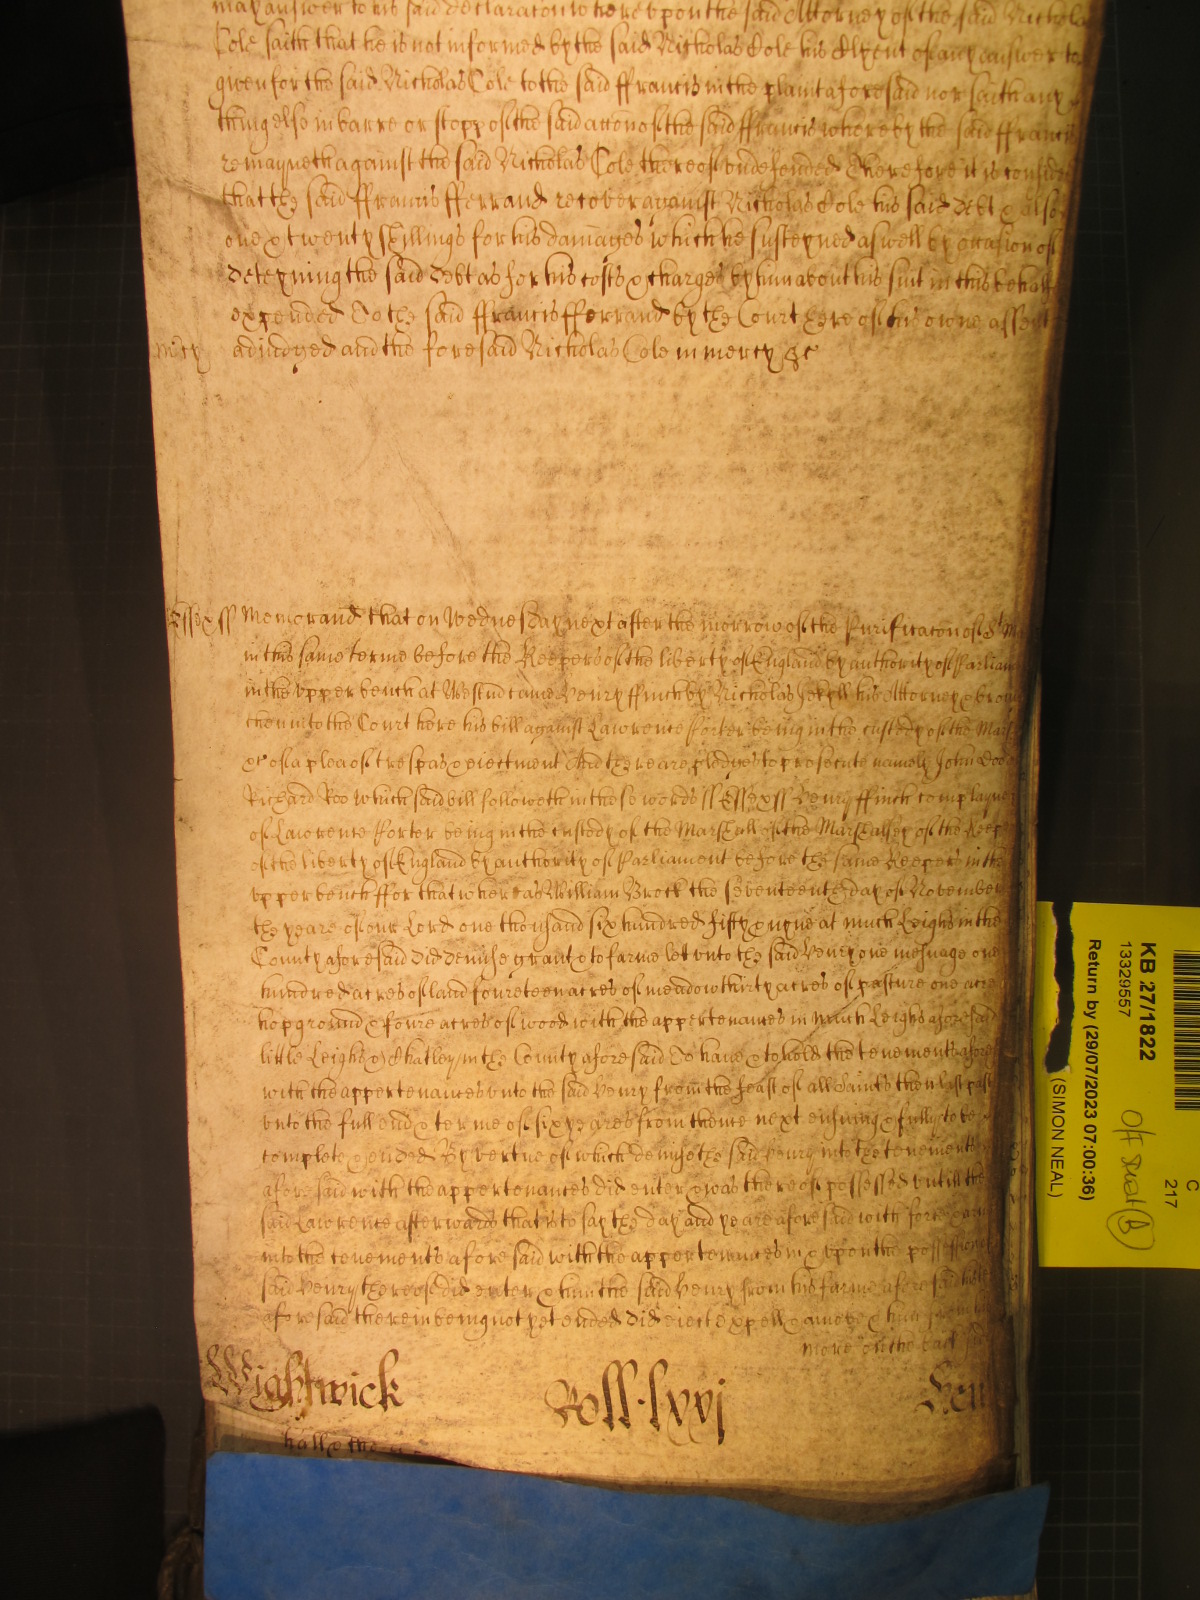 may answer to his said declaracon whereupon the said Attorney of the said Nichola
Cole saith that he is not informed by the said Nicholas Cole his Clyent of any answer to
given for the said Nicholas Cole to the said ffrancis in the plaint aforesaid nor saith any
thing else in barre or stopp of the said accon of the said ffrancis whereby the said ffrancis
remayneth against the said Nicholas Cole thereof undefended Therefore it is consid
that the said ffrancis fferrand recover against Nicholas Cole his said debt & also
one & twenty shillings for his damages which he susteyned aswell by occasion of
deteyning the said debt as for his costs & charges by him about his suit in this behalf
expended To the said ffrancis fferrand by the Court here of his owne assent
mcy adjudged and the foresaid Nicholas Cole in mercy &c
Essex ss Memorand that on Wednesday next after the morrow of the Purificacon of St M
in this same terme before the Keepers of the liberty of England by authority of Parliam
in the upper bench at Westm came Henry ffinch by Nicholas Jekyll his Attorney & brou
then into the Court here his bill against Lawrence Porter being in the custody of the Mars
&c of a plea of trespas & eiectment And there are pledges to prosecute namely John Doo
Richard Roo which said bill followeth in these words ss Essex ss Henry ffinch complayne
of Lawrence Porter being in the custody of the Marshall of the Marshalsey of the Keep
of the liberty of England by authority of Parliament before the same Keepers in the
upper bench ffor that whereas William Brock the seventeenth day of November
the yeare of our Lord one thousand six hundred fifty & nyne at much Leighs in the
County aforesaid did demise grant & to farme let unto the said Henry one messuage one
hundred acres of land foureteen acres of meadow thirty acres of pasture one acre
hopground & foure acres of wood with the appertenances in much Leighs aforesaid
little Leighs & Chatley in the County aforesaid To have & to hold the tenements afore
with the appertenances unto the said Henry from the feast of all Saints then last past
unto the full end & terme of six yeares from thence next ensuing & fully to be
complete & ended By vertue of which demise the said Henry into the tenements
aforesaid with the appertenances did enter & was thereof possessed untill the
said Lawrence afterwards that is to say the day and yeare aforesaid with force & arm
into the tenements aforesaid with the appertenances in & upon the possession
said Henry thereof did enter & him the said Henry from his farme aforesaid his
aforesaid therein being not yet ended did eiect expell & amove & him
more on the back
Wightwick Roll lxxj Hen
hall & the
C
217
KB 27/1822
13329557
Return by (29/07/2023 07:00:36)
(SIMON NEAL)
B